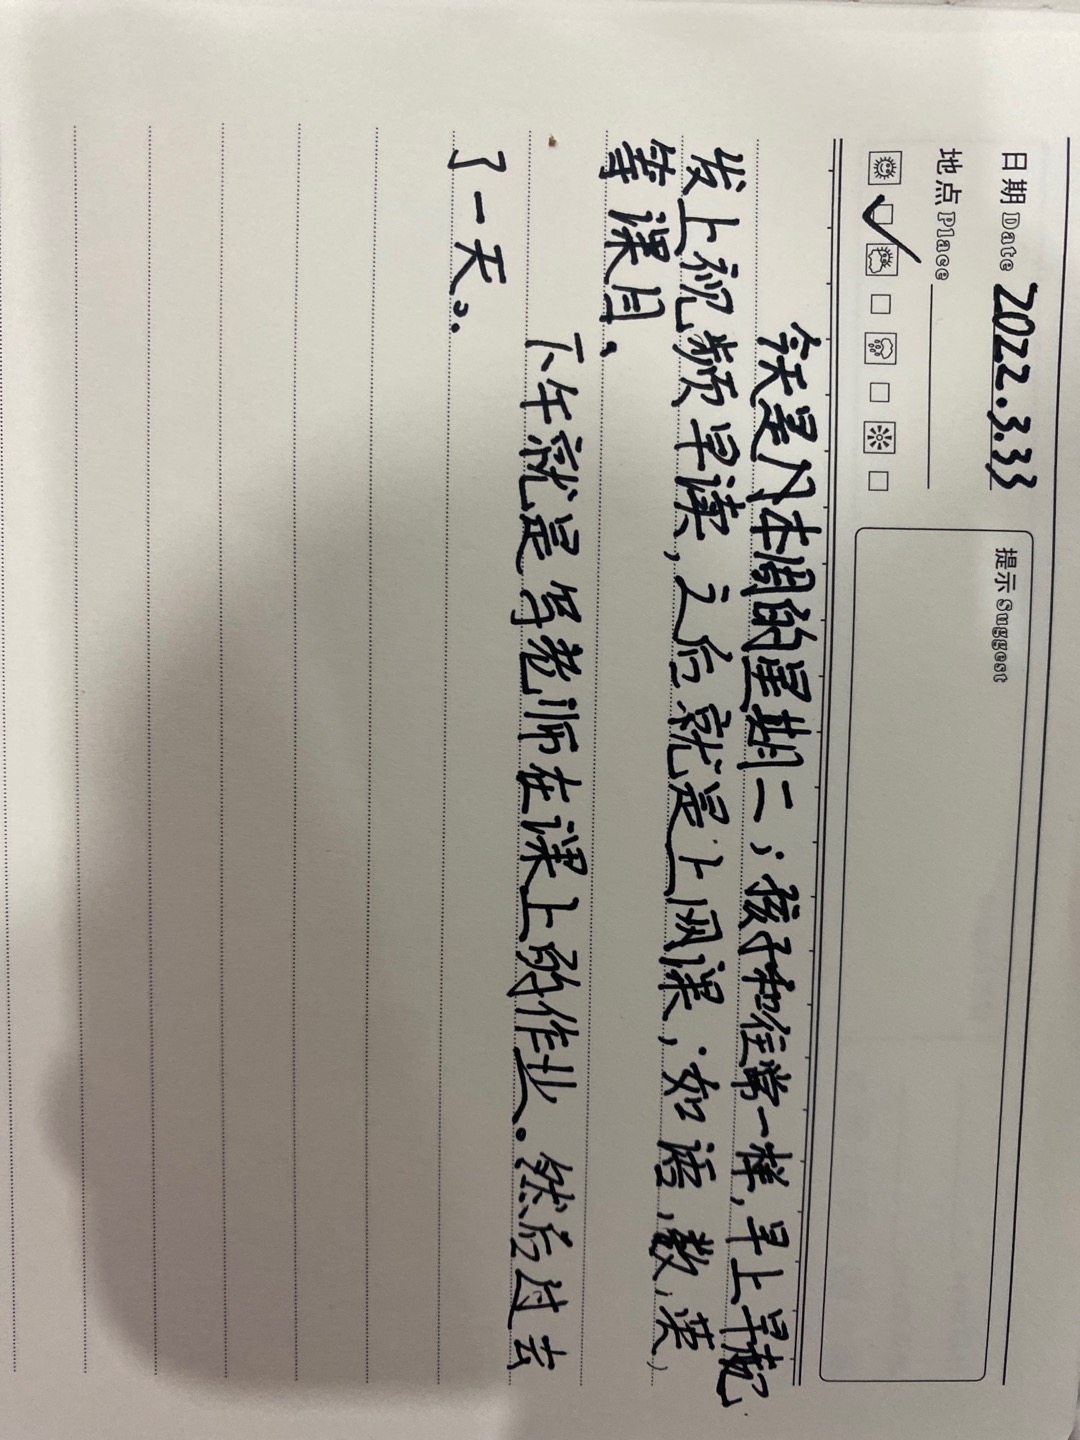 日期 Date 2022.3.33
提示 Suggest
地点 Place
今天是本周的星期二，孩子和往常一样，早上早起
发上视频早读，之后就是上网课，如语，数，英，
等课目。
下午就是写老师在课上的作业。然后过去
了一天。